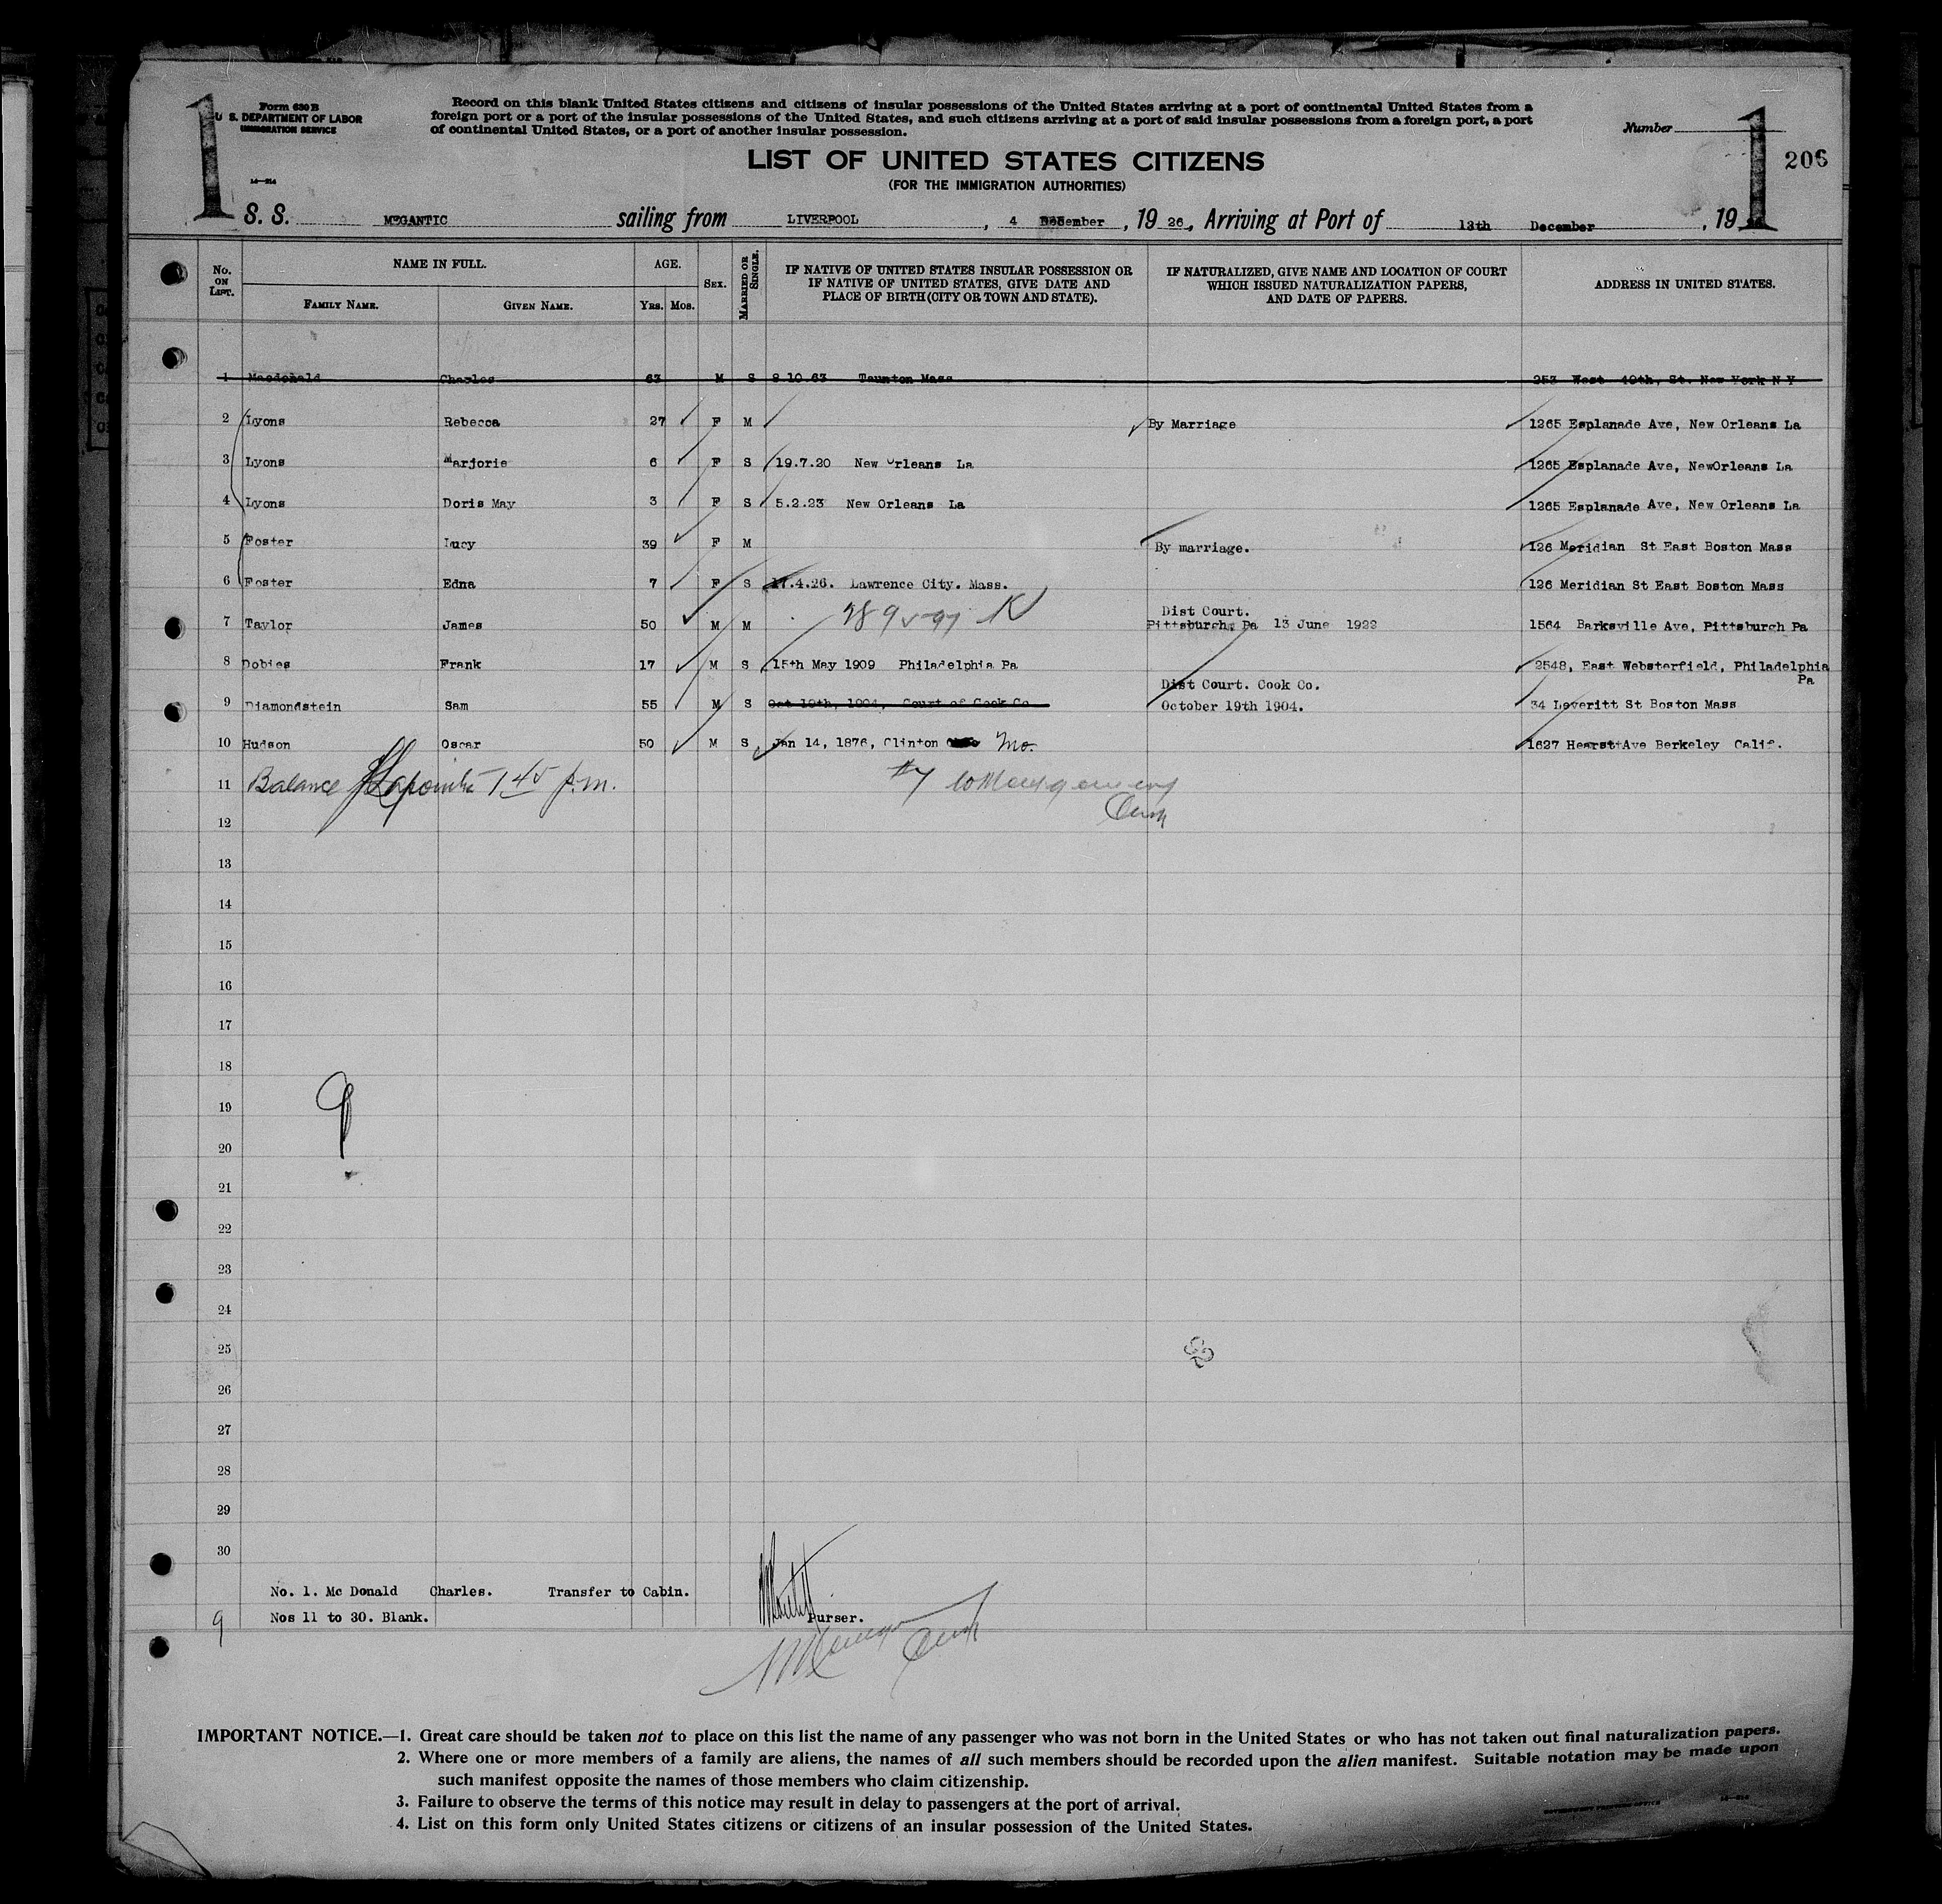 1
Form 630 B
U. S. DEPARTMENT OF LABOR
IMMIGRATION SERVICE
14—214
Record on this blank United States citizens and citizens of insular possessions of the United States arriving at a port of continental United States from a
foreign port or a port of the insular possessions of the United States, and such citizens arriving at a port of said insular possessions from a foreign port, a port
of continental United States, or a port of another insular possession.
Number
1
206
LIST OF UNITED STATES CITIZENS
(FOR THE IMMIGRATION AUTHORITIES)
S. S. MEGANTIC sailing from LIVERPOOL, 4 December, 19 26, Arriving at Port of 13th December, 19
No. ON LIST. NAME IN FULL. FAMILY NAME. GIVEN NAME. AGE. YRS. MOS. SEX. MARRIED OR SINGLE. IF NATIVE OF UNITED STATES INSULAR POSSESSION OR IF NATIVE OF UNITED STATES, GIVE DATE AND PLACE OF BIRTH (CITY OR TOWN AND STATE). IF NATURALIZED, GIVE NAME AND LOCATION OF COURT WHICH ISSUED NATURALIZATION PAPERS, AND DATE OF PAPERS. ADDRESS IN UNITED STATES.
1 Macdonald Charles 63 M S 8.10.63 Taunton Mass 253 West 49th, St. New York N Y
2 Lyons Rebecca 27 F M By Marriage 1265 Esplanade Ave, New Orleans La
3 Lyons Marjorie 6 F S 19.7.20 New Orleans La 1265 Esplanade Ave, NewOrleans La
4 Lyons Doris May 3 F S 5.2.23 New Orleans La 1265 Esplanade Ave, New Orleans La
5 Foster Lucy 39 F M By marriage. 126 Meridian St East Boston Mass
6 Foster Edna 7 F S 17.4.26. Lawrence City. Mass. 126 Meridian St East Boston Mass
Dist Court.
7 Taylor James 50 M M Pittsburgh, Pa 13 June 1922 1564 Barksville Ave, Pittsburgh Pa
8 Dobies Frank 17 M S 15th May 1909 Philadelphia Pa 2548, East Websterfield, Philadelphia
Pa
Dist Court. Cook Co.
9 Diamondstein Sam 55 M S Oct 19th, 1904, Court of Cook Co October 19th 1904. 34 Leveritt St Boston Mass
10 Hudson Oscar 50 M S Jan 14, 1876, Clinton Mo. 1627 Hearst Ave Berkeley Calif.
11 Balance 1 45 p.m. #7
12
13
14
15
16
17
18
19
9
20
21
22
23
24
25
26
27
28
29
30
No. 1. Mc Donald Charles. Transfer to Cabin.
9 Nos 11 to 30. Blank. Purser.
IMPORTANT NOTICE.—1. Great care should be taken not to place on this list the name of any passenger who was not born in the United States or who has not taken out final naturalization papers.
2. Where one or more members of a family are aliens, the names of all such members should be recorded upon the alien manifest. Suitable notation may be made upon
such manifest opposite the names of those members who claim citizenship.
3. Failure to observe the terms of this notice may result in delay to passengers at the port of arrival.
4. List on this form only United States citizens or citizens of an insular possession of the United States.
GOVERNMENT PRINTING OFFICE 14—214